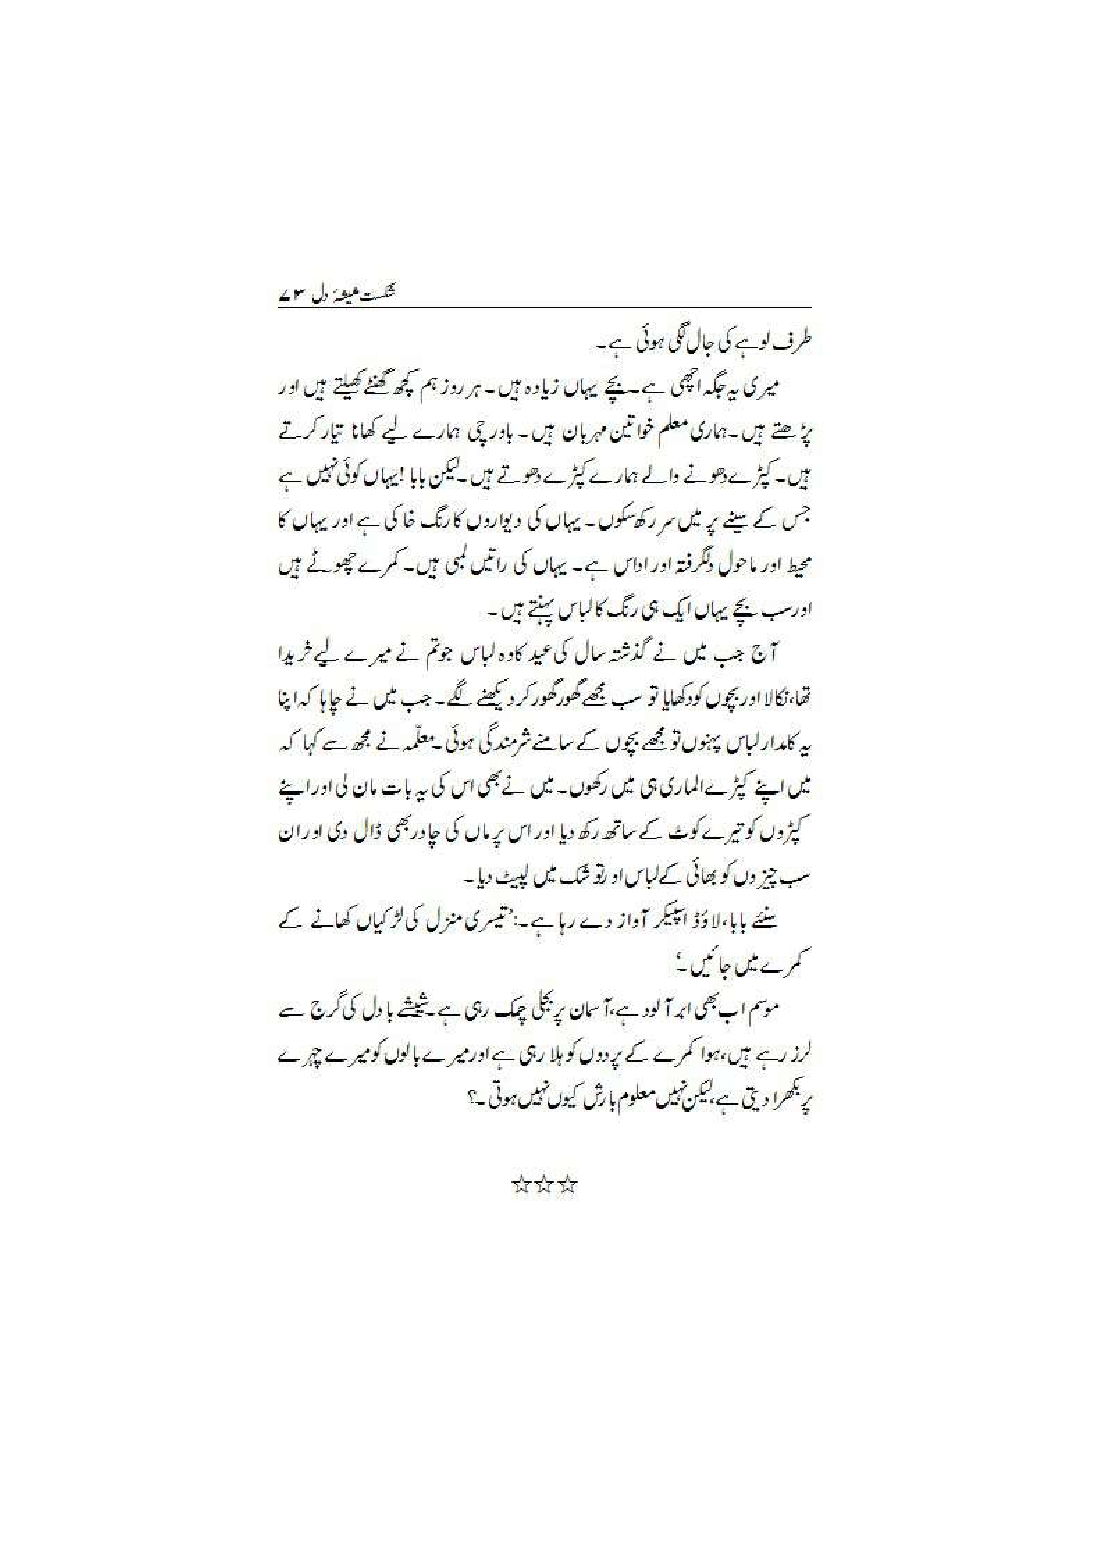 شکست شیشۂ دل ۷۳
طرف لوہے کی جال لگی ہوئی ہے۔
میری یہ جگہ اچھی ہے۔ بچے یہاں زیادہ ہیں۔ ہر روز ہم کچھ گھنٹے کھیلتے ہیں اور
پڑھتے ہیں۔ ہماری معلم خواتین مہربان ہیں۔ باورچی ہمارے لیے کھانا تیار کرتے
ہیں۔ کپڑے دھونے والے ہمارے کپڑے دھوتے ہیں۔ لیکن بابا! یہاں کوئی نہیں ہے
جس کے سینے پر میں سر رکھ سکوں۔ یہاں کی دیواروں کا رنگ خاکی ہے اور یہاں کا
محیط اور ماحول دلگرفتہ اور اداس ہے۔ یہاں کی راتیں لمبی ہیں۔ کمرے چھوٹے ہیں
اور سب بچے یہاں ایک ہی رنگ کا لباس پہنتے ہیں۔
آج جب میں نے گذشتہ سال کی عید کا وہ لباس جو تم نے میرے لیے خریدا
تھا، نکالا اور بچوں کو دکھایا تو سب مجھے گھور گھور کر دیکھنے لگے۔ جب میں نے چاہا کہ اپنا
یہ کامدار لباس پہنوں تو مجھے بچوں کے سامنے شرمندگی ہوئی۔ معلّمہ نے مجھ سے کہا کہ
میں اپنے کپڑے الماری ہی میں رکھوں۔ میں نے بھی اس کی یہ بات مان لی اور اپنے
کپڑوں کو تیرے کوٹ کے ساتھ رکھ دیا اور اس پر ماں کی چادر بھی ڈال دی اور ان
سب چیزوں کو بھائی کے لباس اور توشک میں لپیٹ دیا۔
سنئے بابا، لاؤڈ اسپیکر آواز دے رہا ہے۔: ’تیسری منزل کی لڑکیاں کھانے کے
کمرے میں جائیں۔‘
موسم اب بھی ابر آلود ہے، آسمان پر بجلی چمک رہی ہے۔ شیشے بادل کی گرج سے
لرز رہے ہیں، ہوا کمرے کے پردوں کو ہلا رہی ہے اور میرے بالوں کو میرے چہرے
پر بکھرا دیتی ہے، لیکن نہیں معلوم بارش کیوں نہیں ہوتی۔؟
☆☆☆